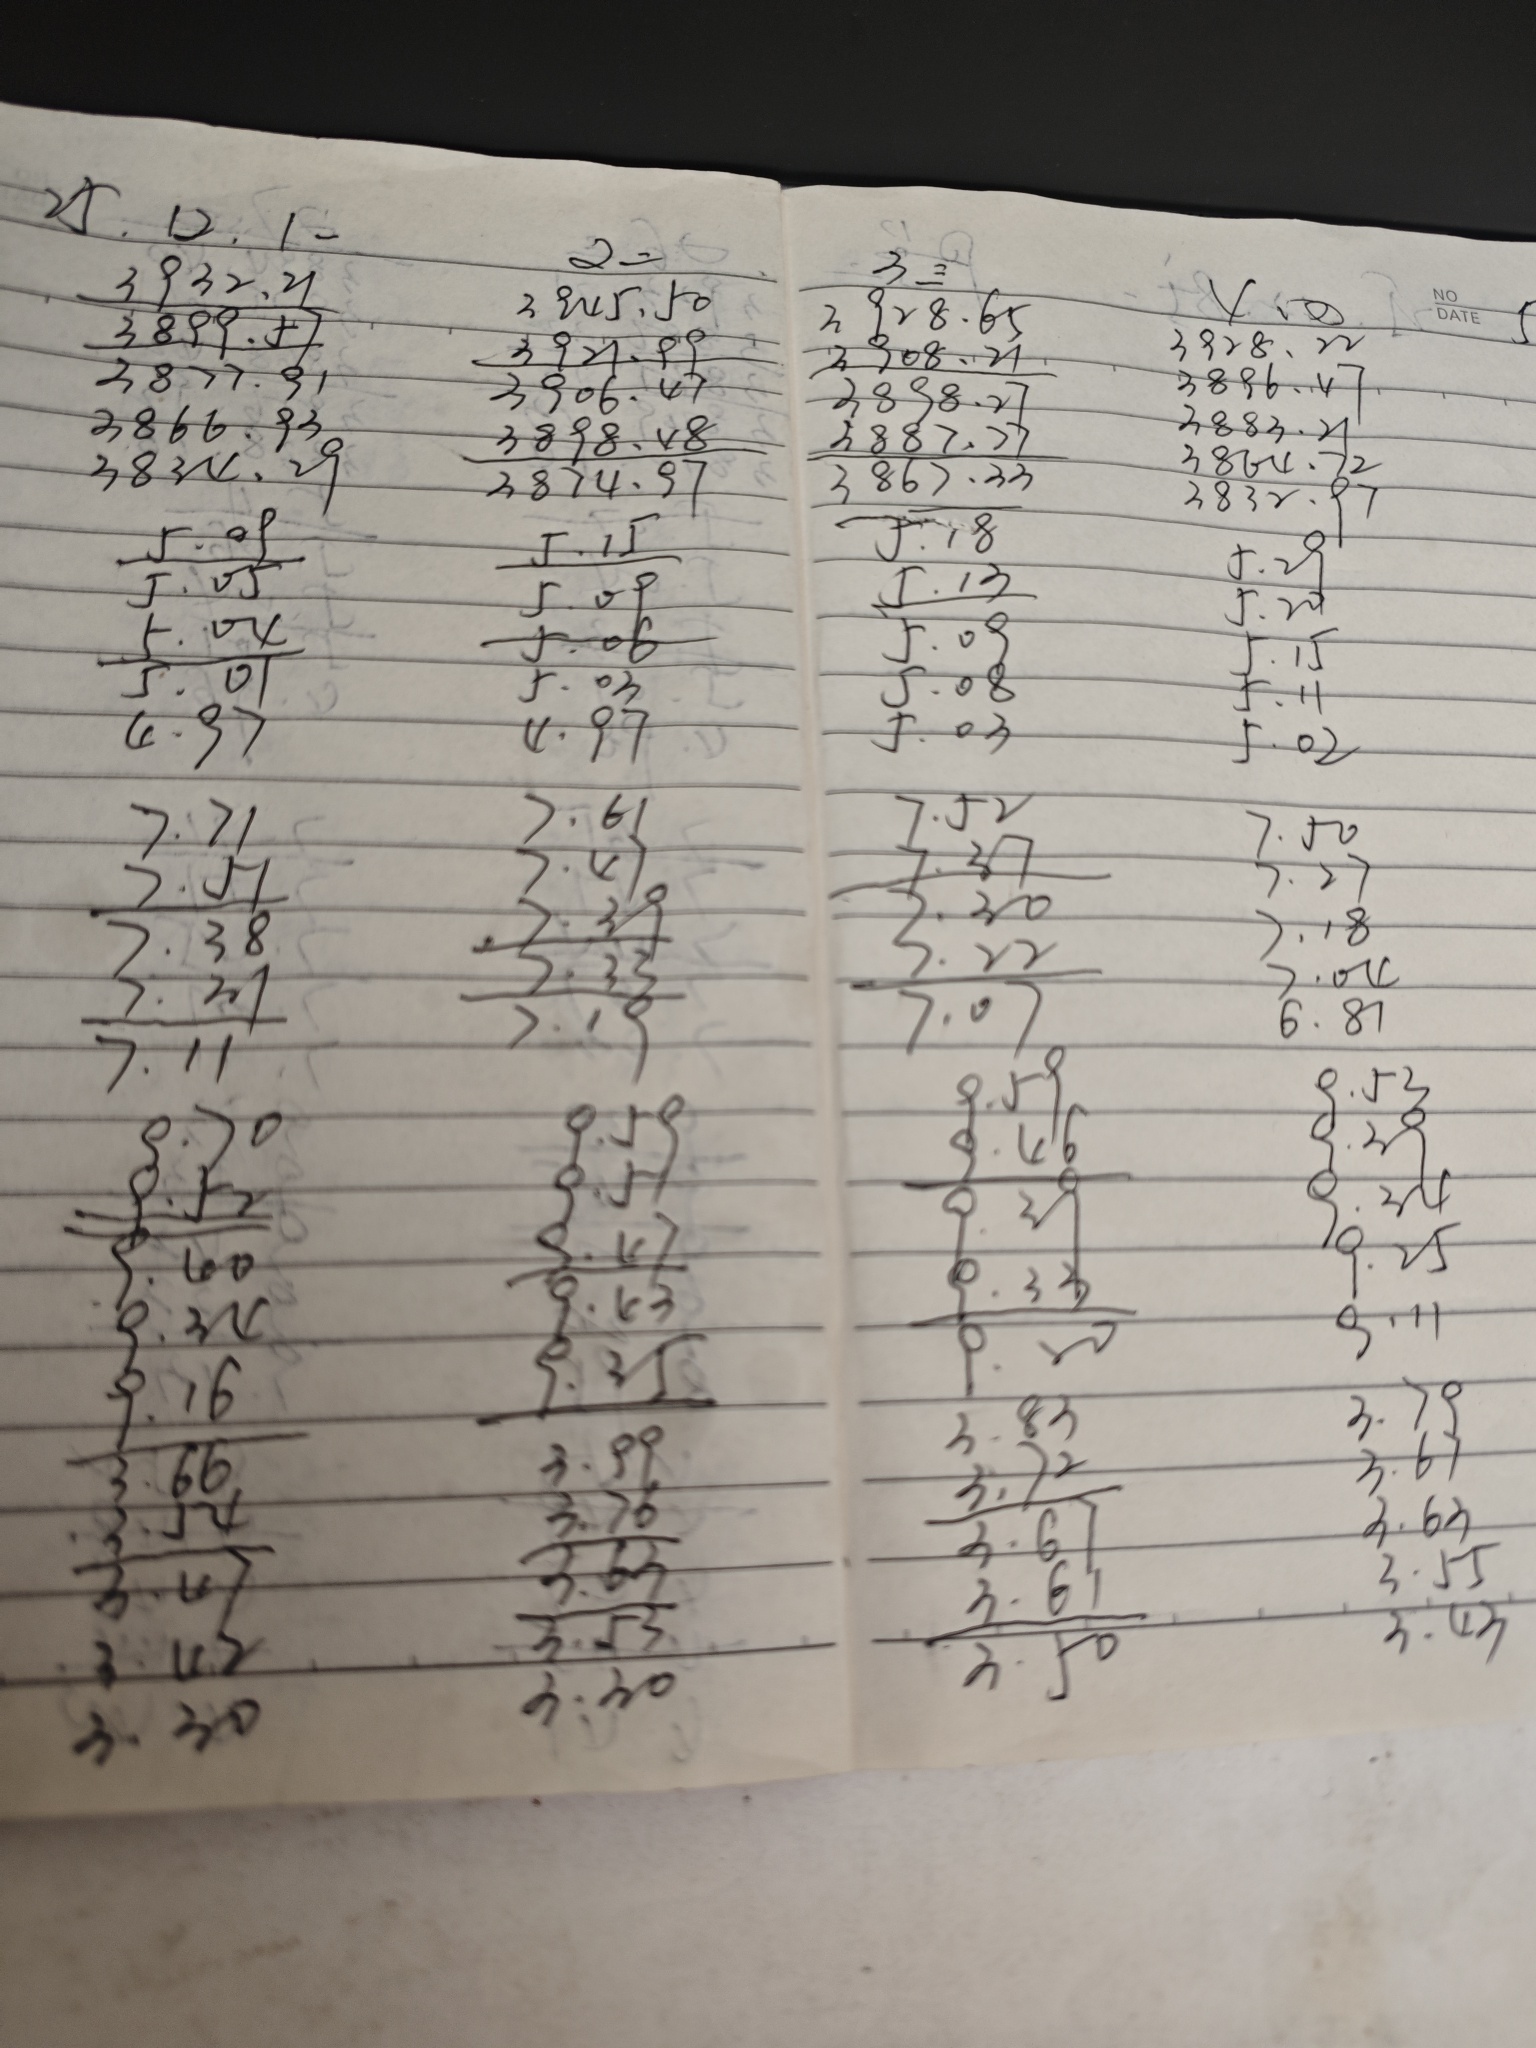 25.12.1=
3932.21
3899.57
3877.91
3866.93
3834.29
5.09
5.05
5.04
5.01
4.97
7.71
7.57
7.38
7.27
7.11
9.70
9.52
9.40
9.34
9.16
3.66
3.54
3.47
3.42
3.30
2=
3945.50
3921.99
3906.47
3898.48
3874.97
5.15
5.09
5.06
5.03
4.97
7.61
7.47
7.39
7.33
7.19
9.59
9.57
9.47
9.43
9.35
3.99
3.76
3.63
3.53
3.30
3=
3928.65
3908.21
3898.27
3887.77
3867.33
5.18
5.13
5.09
5.08
5.03
7.52
7.37
7.30
7.22
7.07
9.59
9.46
9.39
9.33
9.20
3.83
3.72
3.67
3.61
3.50
NO
DATE
3928.22
3896.47
3883.21
3864.72
3832.97
5.29
5.20
5.15
5.11
5.02
7.50
7.27
7.18
7.04
6.81
9.53
9.39
9.34
9.25
9.11
3.79
3.67
3.63
3.55
3.43